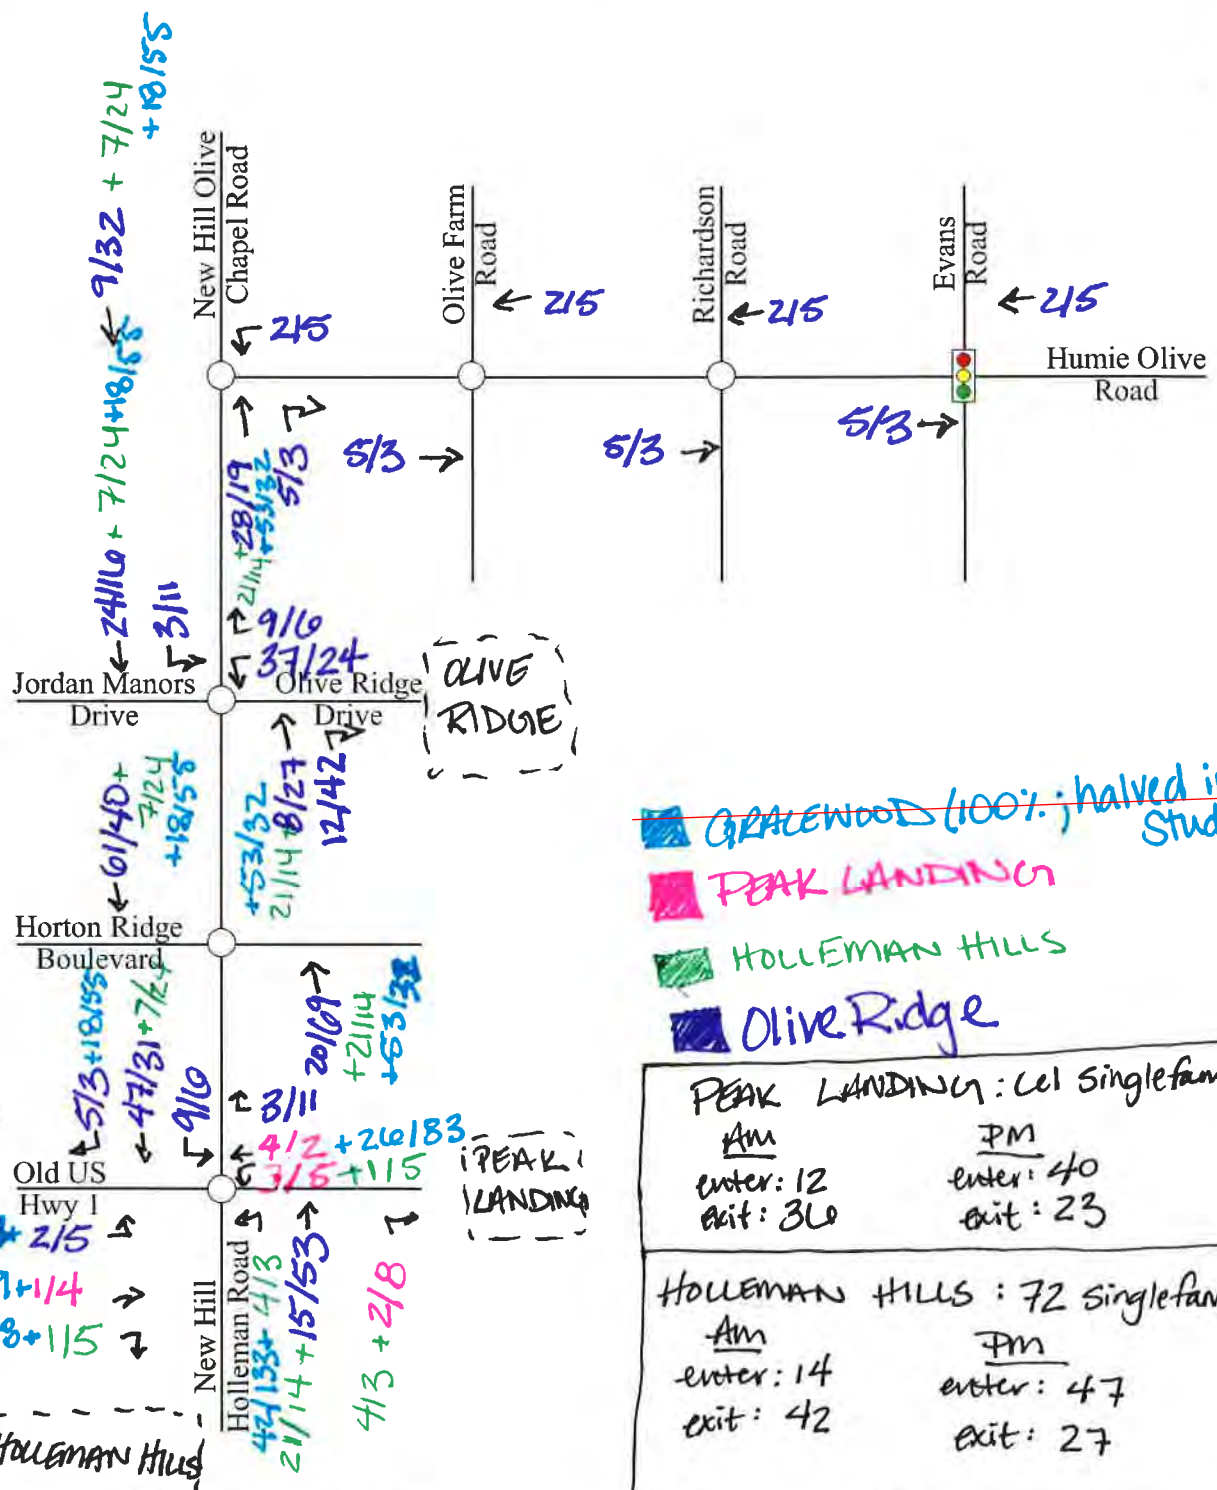 9/32 + 7/24
+18/55
New Hill Olive
Chapel Road
Olive Farm
Road
Richardson
Road
Evans
Road
← 2/5
← 2/5
← 2/5
2/5
Humie Olive
Road
5/3 →
5/3 →
5/3 →
5/3
28/19
21/14 +53/32
24/16 + 7/24 +18/55
3/11
9/6
37/24
Jordan Manors
Drive
Olive Ridge
Drive
OLIVE
RIDGE
61/40 +
7/24
+18/55
+53/32
21/14 + 8/27
12/42
GRACEWOOD (100%; halved i
Stud
PEAK LANDING
HOLLEMAN HILLS
Olive Ridge
Horton Ridge
Boulevard
5/3 +18/55
47/31 + 7/24
9/6
20/69
+21/14
+53/32
3/11
4/2 +26/83
3/5 +1/5
Old US
Hwy 1
PEAK
LANDING
+ 2/5
+1/4
8+1/5
New Hill
Holleman Road
42/133 + 4/3
21/14 + 15/53
4/13 + 2/8
HOLLEMAN HILLS
PEAK LANDING: 61 single fam
AM PM
enter: 12 enter: 40
exit: 36 exit: 23
HOLLEMAN HILLS: 72 single fam
AM PM
enter: 14 enter: 47
exit: 42 exit: 27